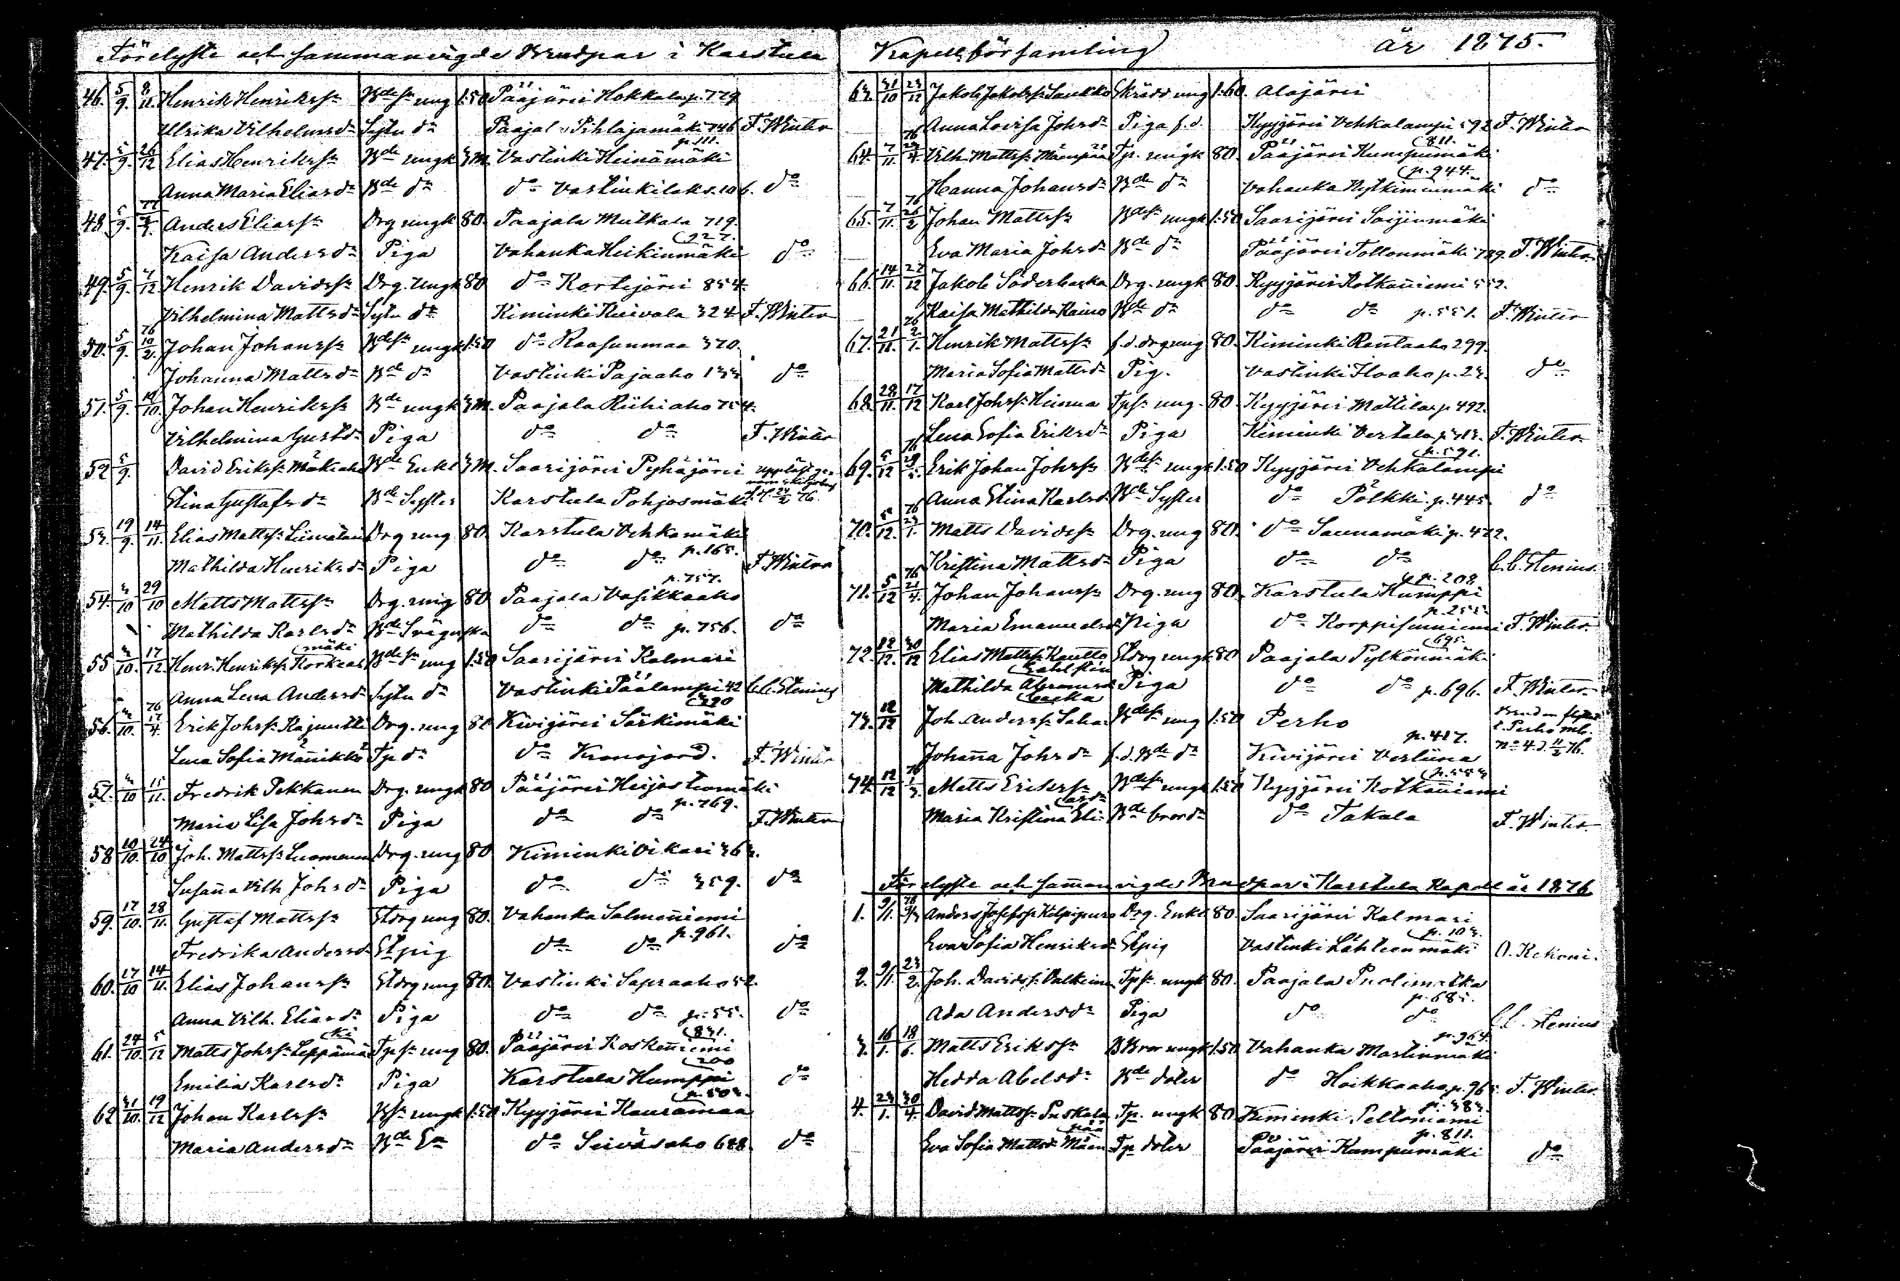 Förelyste och sammanvigde Brudpar i Karstula
46. 5/9. 8/11. Henrik Henrikss:n Bdes:n ung 1:50 Pääjärvi Hokkala p. 779
Ulrika Vilhelmsd:r Systr d:r Paajal. Pihlajamäki 746 F. Winter
p. 111.
47. 5/9. 26/12 Elias Henrikss:n Bde ungk 3M. Vastinki Heinämäki
Anna Maria Eliasd:r Bde d:r d:o Vastinkilaks. 106. d:o
48 5/9. Anders Eliass:n Drg ungk 80. Paajala Mulkala 719.
927.
Kaisa Andersd:r Piga Vahanka Heikinmäki d:o
49. 5/9. 7/12 Henrik Davidss:n Drg. ungk 80 d:o Kortejärvi 854.
Vilhelmina Mattsd:r Systr d:r Kiminki Kiivala 324 F. Winter
50. 5/9. 76 10/2. Johan Johanss:n Bdes:n ungk 1:50 d:o Raasunmaa 370.
Johanna Mattsd:r Bde d:r Vastinki Pajaaho 133 d:o
51. 5/9. 10/10. Johan Henrikss:n Bde ungk 3M. Paajala Riihiaho 754.
Vilhelmina Gustd:r Piga d:o d:o F. Winter
52 5/9. David Erikss:n Mäkiaho Bde Enkl 3M. Saarijärvi Pyhäjärvi
Stina Gustafsd:r Bde Syster Karstula Pohjosmäki
53. 19/9. 14/11. Elias Mattss:n Liimatain Drg ung 80. Karstula Vehkamäki
p. 165.
Mathilda Henriksd:r Piga d:o d:o F. Winter
p. 757.
54. 3/10 29/10 Matts Mattss:n Drg. ung 80. Paajala Vasikkaaho
Mathilda Karlsd:r Bde Svägerska d:o d:o p. 756. d:o
mäki
55 3/10. 17/12. Henr. Henrikss:n Korkeas Bdes:n ung 1:50 Saarijärvi Kalmari
Anna Lena Andersd:r Systr d:r Vastinki Päälampi 42 C.C. Stenius
56. 3/10. 76 17/4. Erik Johss: Drg. ung 80 Kivijärvi Särkimäki
Lena Sofia Männikkö Tp. d:r d:o Kronojord. F. Winter
57. 3/10 15/11. Fredrik Pekkanen Drg. ungk 80 Pääjärvi Heijostenmäki
p. 769.
Maria Lisa Johsd:r Piga d:o d:o F. Winter
58 10/10. 24/10 Joh. Mattss:n Luomanen Drg. ung 80 Kiminki Oikari 363.
Susanna Vilh Johsd:r Piga d:o d:o 359. d:o
59. 17/10. 28/11. Gustaf Mattss:n Stdrg ung 80. Vahanka Salmeniemi
p. 961.
Fredrika Andersd:r Stpig d:o d:o d:o
60. 17/10 14/11. Elias Johanss:n Stdrg ung 80. Vastinki Sapraaho 52.
Anna Vilh. Eliasd:r Piga d:o d:o p. 55. d:o
ki 831.
61. 24/10. 5/12 Matts Johss:n Leppämä Tps:n ung 80. Pääjärvi Koskeniemi
200
Emilia Karlsd:r Piga Karstula Humppi d:o
p. 503.
62 31/10. 19/12 Johan Karlss:n Bs:n ungk 1:50 Kyyjärvi Hauramaa
Maria Andersd:r Bde E:a d:o Seiväsaho 688. d:o
Kapellsförsamling år 1875.
63. 31/10 23/12 Jakob Jakobss:n Saukko Skrädd ung 1:60. Alajärvi
Anna Lovisa Johsd:r Piga f.d. Kyyjärvi Vehkalampi 592 F. Winter
811.
64. 7/11. 76 23/4. Vilh. Mattss:n Mäenpää Tp. ungk 80. Pääjärvi Kumpumäki
p. 944.
Hanna Johansd:r Bde d:r Vahanka Nytkimenmäki d:o
65. 7/11. 76 26/2 Johan Mattss:n Bdes:n ungk 1:50 Saarijärvi Saijinmäki
Eva Maria Johsd:r Bde d:r Pääjärvi Tollonmäki 789. F. Winter
66. 14/11. 27/12 Jakob Söderbacka Drg. ungk 80. Kyyjärvi Kotkaniemi 552.
Kaisa Mathilda Kaino Bde d:r d:o d:o p. 551. F. Winter
67. 21/11. 76 2/1. Henrik Mattss:n f.d. drg ung 80. Kiminki Rantaaho 299.
Maria Sofia Mattsd:r Pig. Vastinki Iloaho p. 23. d:o
68. 28/11. 17/12 Karl Johss:n Heinua Tps:n ung. 80. Kyyjärvi Mattila p. 492.
Lena Sofia Eriksd:r Piga Kiminki Vertala F. Winter
p. 591.
69. 5/12 76 Erik Johan Johss:n Bdes:n ungk 1:50 Kyyjärvi Vehkalampi
Anna Stina Karlsd:r Bde Syster d:o Pölkki p. 445. d:o
70. 5/12 76 23/1. Matts Davidss:n Drg. ung 80. d:o Saunamäki p. 472.
Kristina Mattsd:r Piga d:o d:o C.C. Stenius.
p. 208
71. 5/12 76 21/4. Johan Johanss:n Drg. ung 80. Karstula Humppi
p. 255.
Maria Emanuelsd:r Piga d:o Korppisenniemi F. Winter.
695.
72. 12/12. 30/12 Elias Mattss:n Kautto Stdrg ungk 80 Paajala Pylkönmäki
Mathilda Piga d:o d:o p. 696. F. Winter
73. 12/12 Joh. Anderss:n Bdes:n ung 1:50 Perho
p. 417.
Johanna Johsd:r f.d. Bde d:r Kivijärvi Verliina
p. 553
74. 12/12 76 Matts Erikss:n Bdes:n ungk 1:50 Kyyjärvi Kotkaniemi
asd:r
Maria Kristina Eli Bde brord:r d:o Takala F. Winter.
Förelyste och sammanvigde Brudpar i Karstula Kapell år 1876
1. 9/1. 76 Anders Josefss:n Kilpipuro Drg. Enkl 80. Saarijärvi Kalmari
p. 103.
Eva Sofia Henriksd:r Stpig Vastinki Lähteenmäki A. Rekoni.
2. 9/1. 23/2. Joh. Davidss:n Valkeinen Tps:n ungk 80. Paajala Puolimatka
p. 685.
Ada Andersd:r Piga d:o d:o C.C. Stenius
p. 964.
3. 16/1. 18/6. Matts Erikss:n B Bror ungk 1:50 Vahanka Martinmäki
Hedda Abelsd:r Bde doter d:o Hoikkaaho p. 965 F. Winter.
p. 383.
4. 23/1. 30/4. David Mattss:n Puskala Tp. ungk 80 Kiminki Peltoniemi
pää p. 811.
Eva Sofia Mattsd:r Mäen Tp doter Pääjärvi Kumpumäki d:o